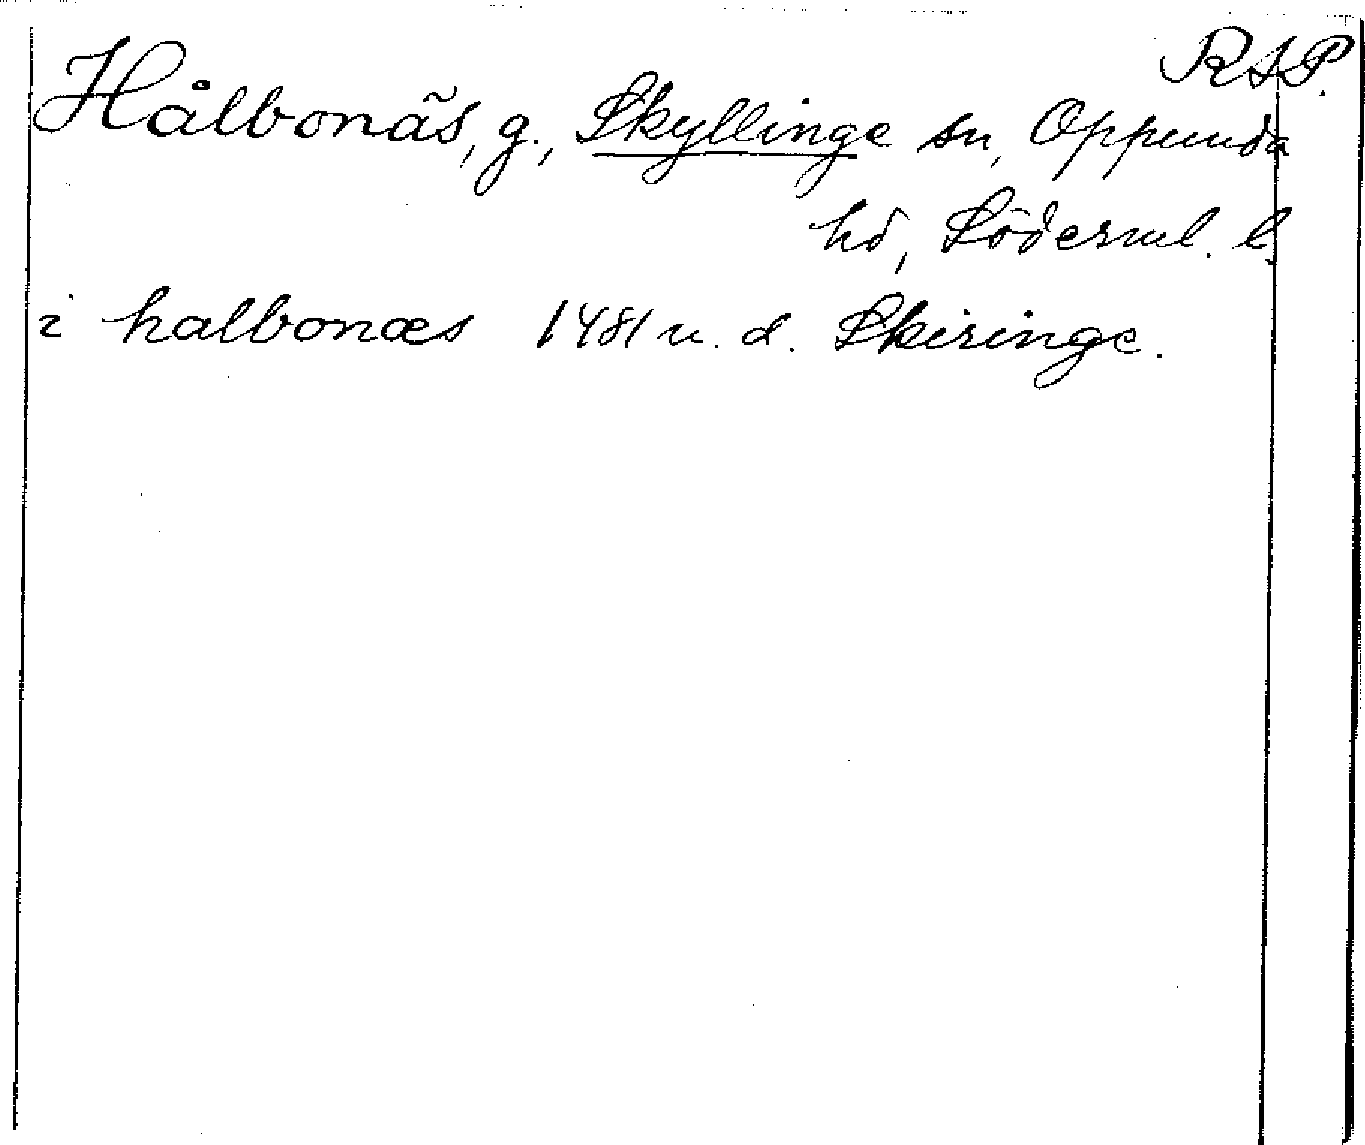 RAP.
Hålbonäs, g., Skyllinge sn, Oppunda
hd, Söderml. l.
i halbonæs 1481 u. d. Skiringe.